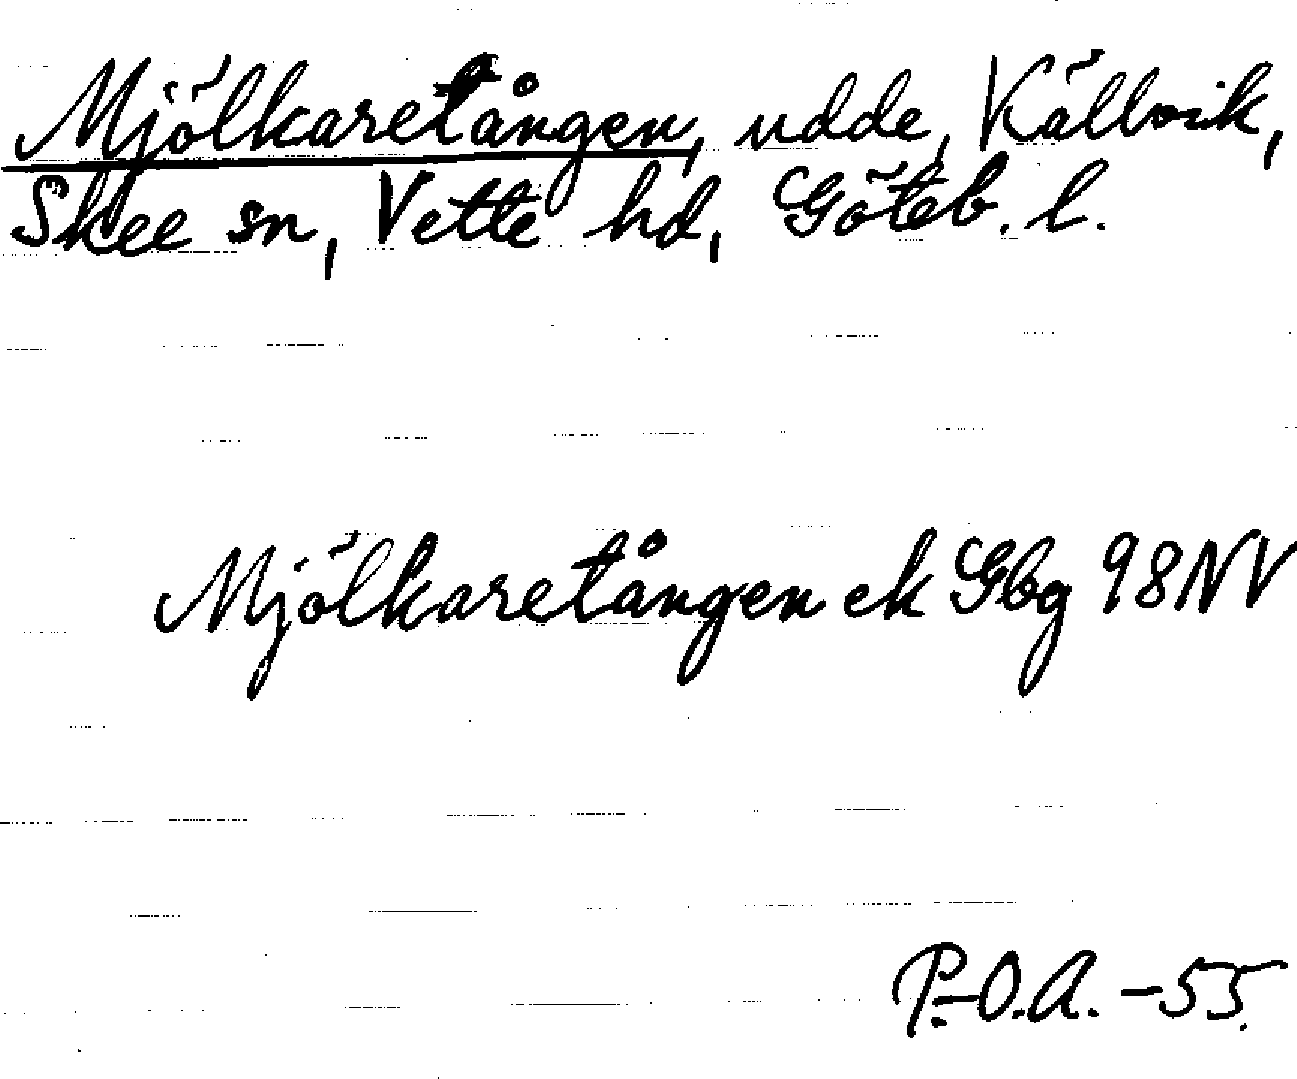 Mjölkaretången, udde, Källvik,
Skee sn, Vette hd, Göteb. l.
Mjölkaretången ek Gbg 98NV
P.-O.A. -55.